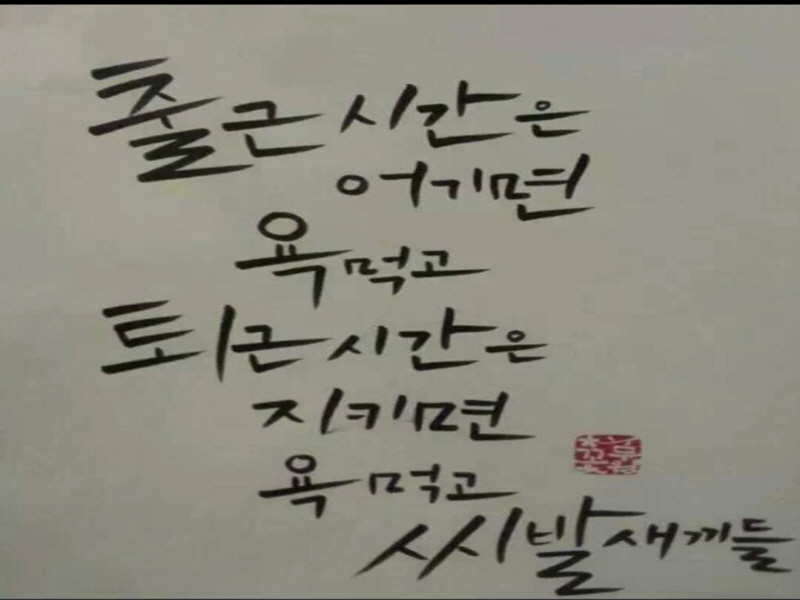 출근 시간은
어기면
욕 먹고
퇴근 시간은
지키면
욕 먹고
씨발 새끼들